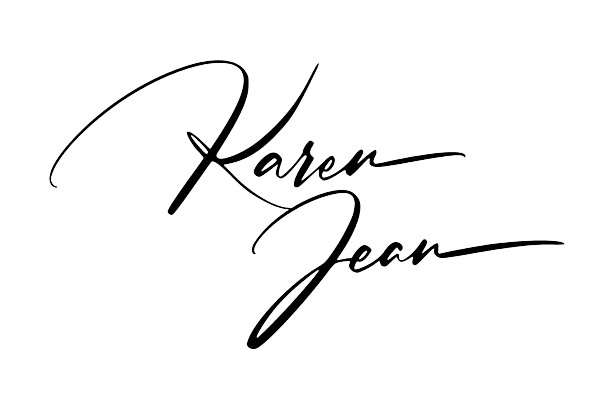 Karen
Jean